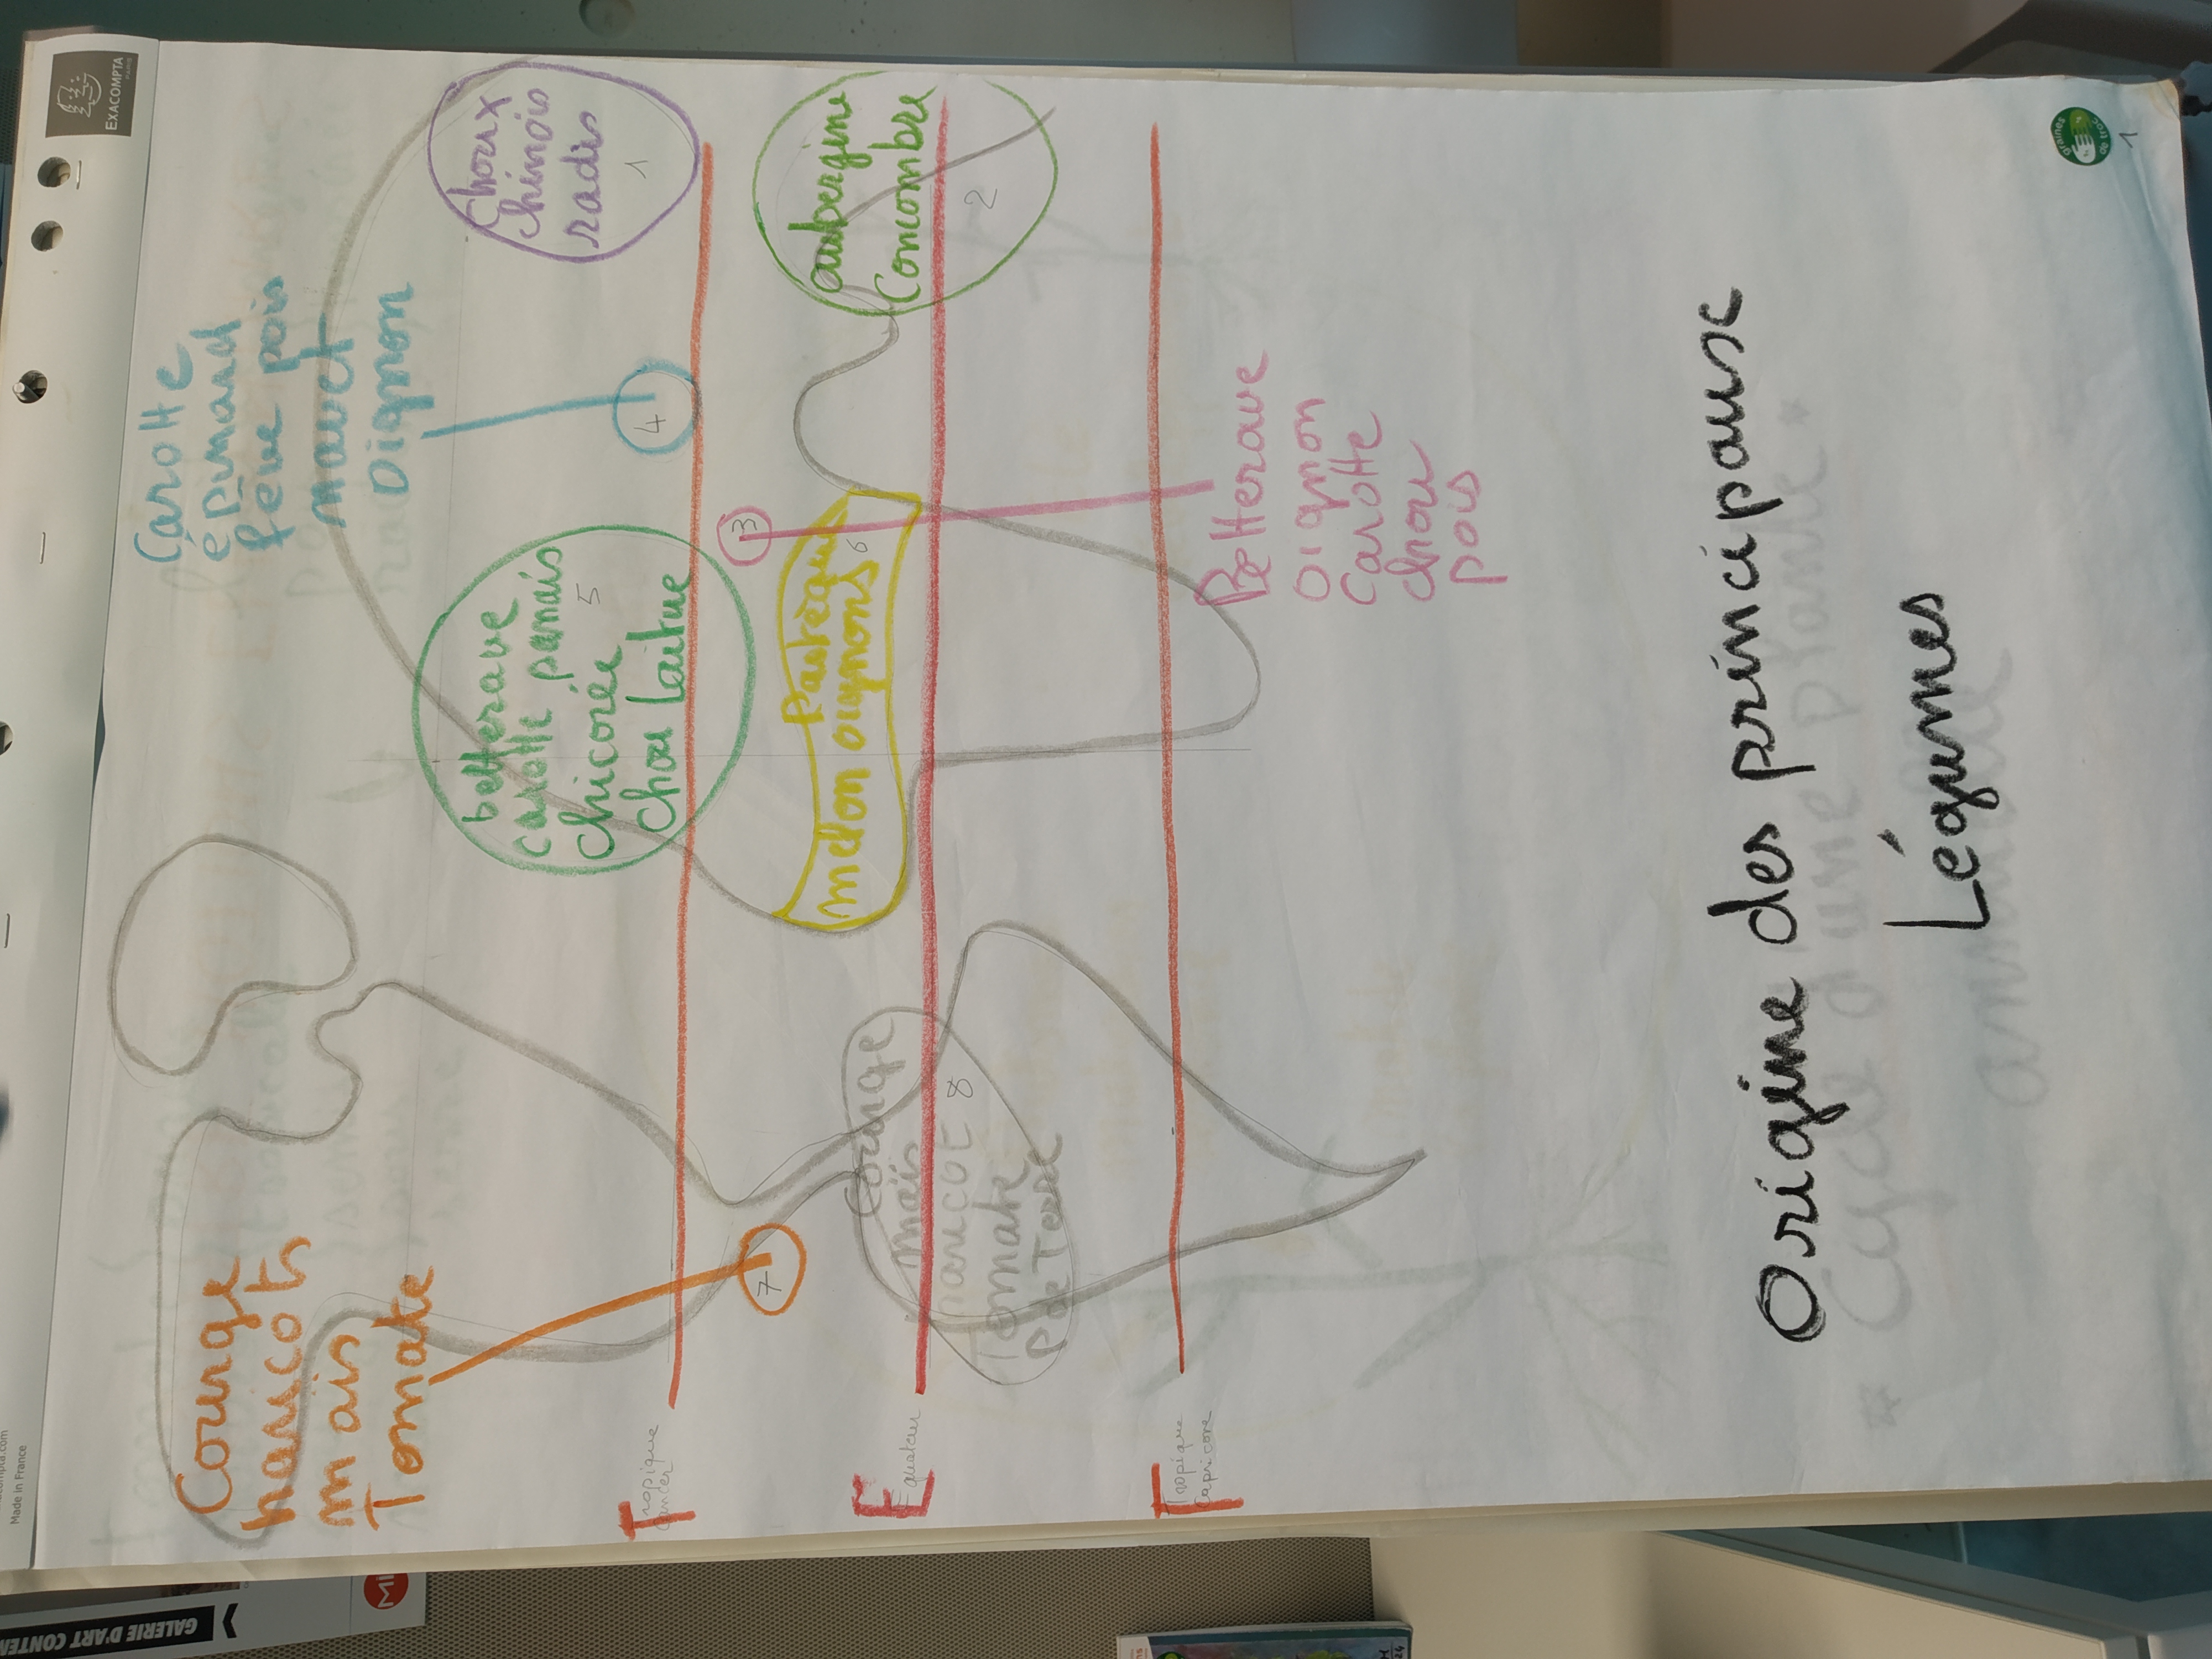 EXACOMPTA
PARIS
Made in France
Carotte
épinard
fève pois
navet
oignon
Choux
chinois
radis
1
4
betterave
carotte panais
chicorée 5
chou laitue
aubergine
Concombre
2
3
Pastèque 6
melon oignons
Betterave
oignon
carotte
chou
pois
Courge
haricots
mais
Tomate
7
Courge
mais
haricot 8
Tomate
P de Terre
Tropique
cancer
Equateur
Tropique
capricorne
Origine des principaux
Légumes
graines
de troc
1
GALERIE D'ART CONTEM
Mi